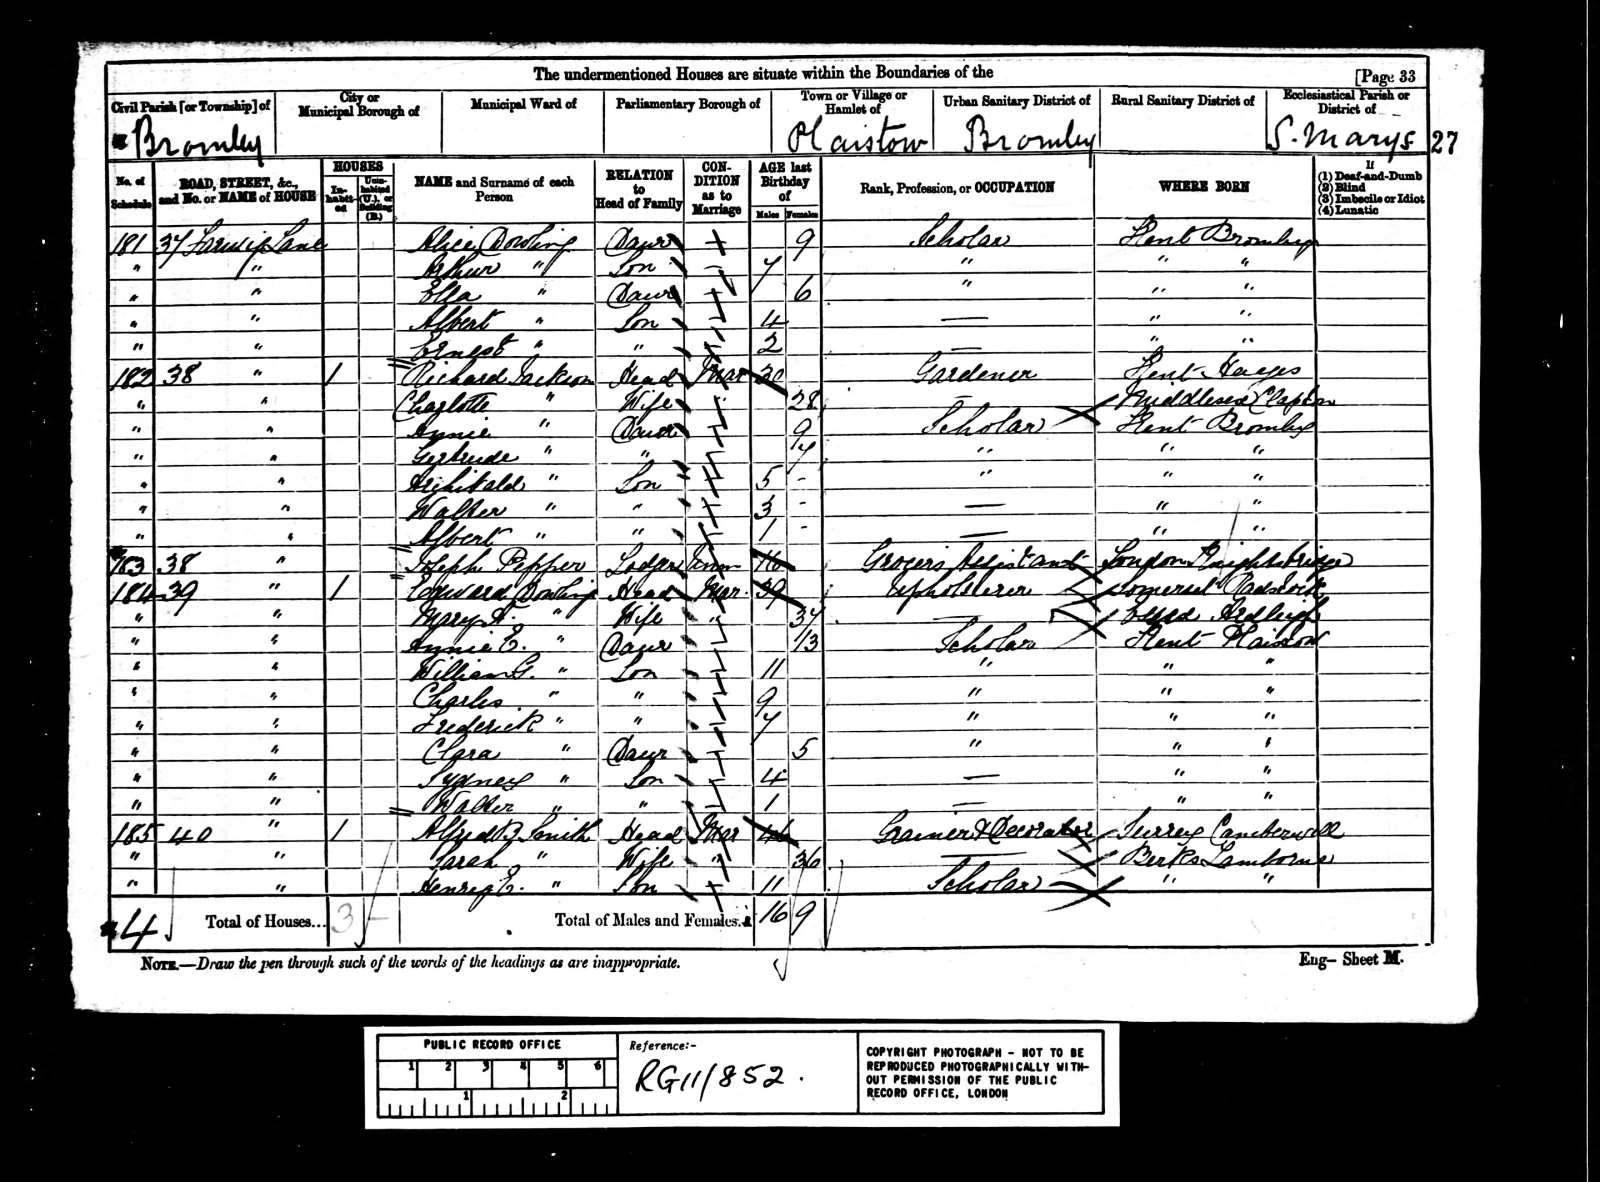 The undermentioned Houses are situate within the Boundaries of the [Page 33
Civil Parish [or Township] of City or Municipal Borough of Municipal Ward of Parliamentary Borough of Town or Village or Hamlet of Urban Sanitary District of Rural Sanitary District of Ecclesiastical Parish or District of
Bromley Plaistow Bromley S. Marys 27
No. of Schedule ROAD, STREET, &c., and No. or NAME of HOUSE HOUSES Inhabited Uninhabited (U.), or Building (B.) NAME and Surname of each Person RELATION to Head of Family CONDITION as to Marriage AGE last Birthday of Males Females Rank, Profession, or OCCUPATION WHERE BORN If (1) Deaf-and-Dumb (2) Blind (3) Imbecile or Idiot (4) Lunatic
181 37 Lane Alice Dowling Daur 9 Scholar Kent Bromley
" " Arthur " Son 7 " " "
" " Ella " Daur 6 " " "
" " Albert " Son 4 — " "
" " Ernest " " 2 — " "
182 38 " 1 Richard Jackson Head Mar 30 Gardener Kent Hayes
" " Charlotte " Wife " 28 Middlesex Clapton
" " Annie " Daur 9 Scholar Kent Bromley
" " Gertrude " " 7 " " "
" " Archibald " Son 5 - " " "
" " Walter " " 3 - — " "
" " Albert " " 1 - — " "
183 38 " Joseph Pepper Lodger Unm 16 Grocers Assistant London Knightsbridge
184 39 " 1 Edward Dowling Head Mar. 39 Upholsterer Somerset Radstock
" " Mary A. " Wife " 37 — Essex Ardleigh
" " Annie E. " Daur 13 Scholar Kent Plaistow
" " William G. " Son 11 " " "
" " Charles " " 9 " " "
" " Frederick " " 7 " " "
" " Clara " Daur 5 " " "
" " Sydney " Son 4 — " "
" " Walter " " 1 — " "
185 40 " 1 Alfred B. Smith Head Mar Grainer & Decorator Surrey Camberwell
" " Sarah " Wife " 36 — Berks Lambourne
" " Henry E. " Son 11 Scholar " "
4 Total of Houses... 3 - Total of Males and Females.. 16 9
NOTE.—Draw the pen through such of the words of the headings as are inappropriate. Eng— Sheet M.
PUBLIC RECORD OFFICE
1 2 3 4 5 6
1 2
Reference:-
RG11/852.
COPYRIGHT PHOTOGRAPH - NOT TO BE
REPRODUCED PHOTOGRAPHICALLY WITH-
OUT PERMISSION OF THE PUBLIC
RECORD OFFICE, LONDON